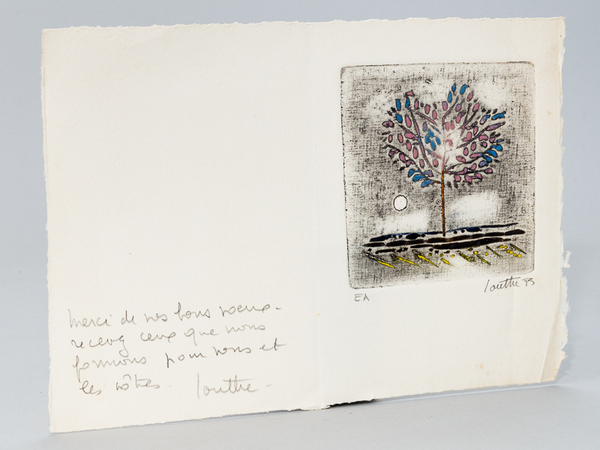 merci de vos bons voeux.
recevez ceux que nous
formons pour vous et
les vôtres. louttre.
EA
louttre 93